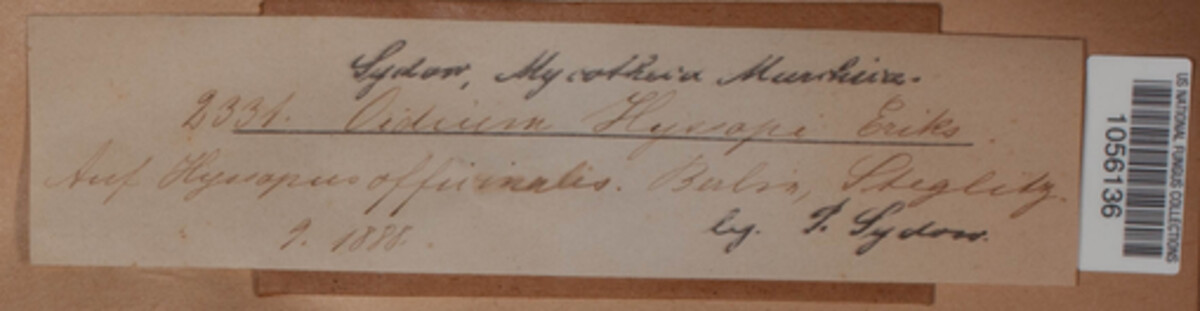 Sydow, Mycotheca Marchica.
2331. Oidium Hyssopi Eriks.
Auf Hyssopus officinalis. Berlin, Steglitz.
9. 1888.
leg. P. Sydow.
US NATIONAL FUNGUS COLLECTIONS
1056136